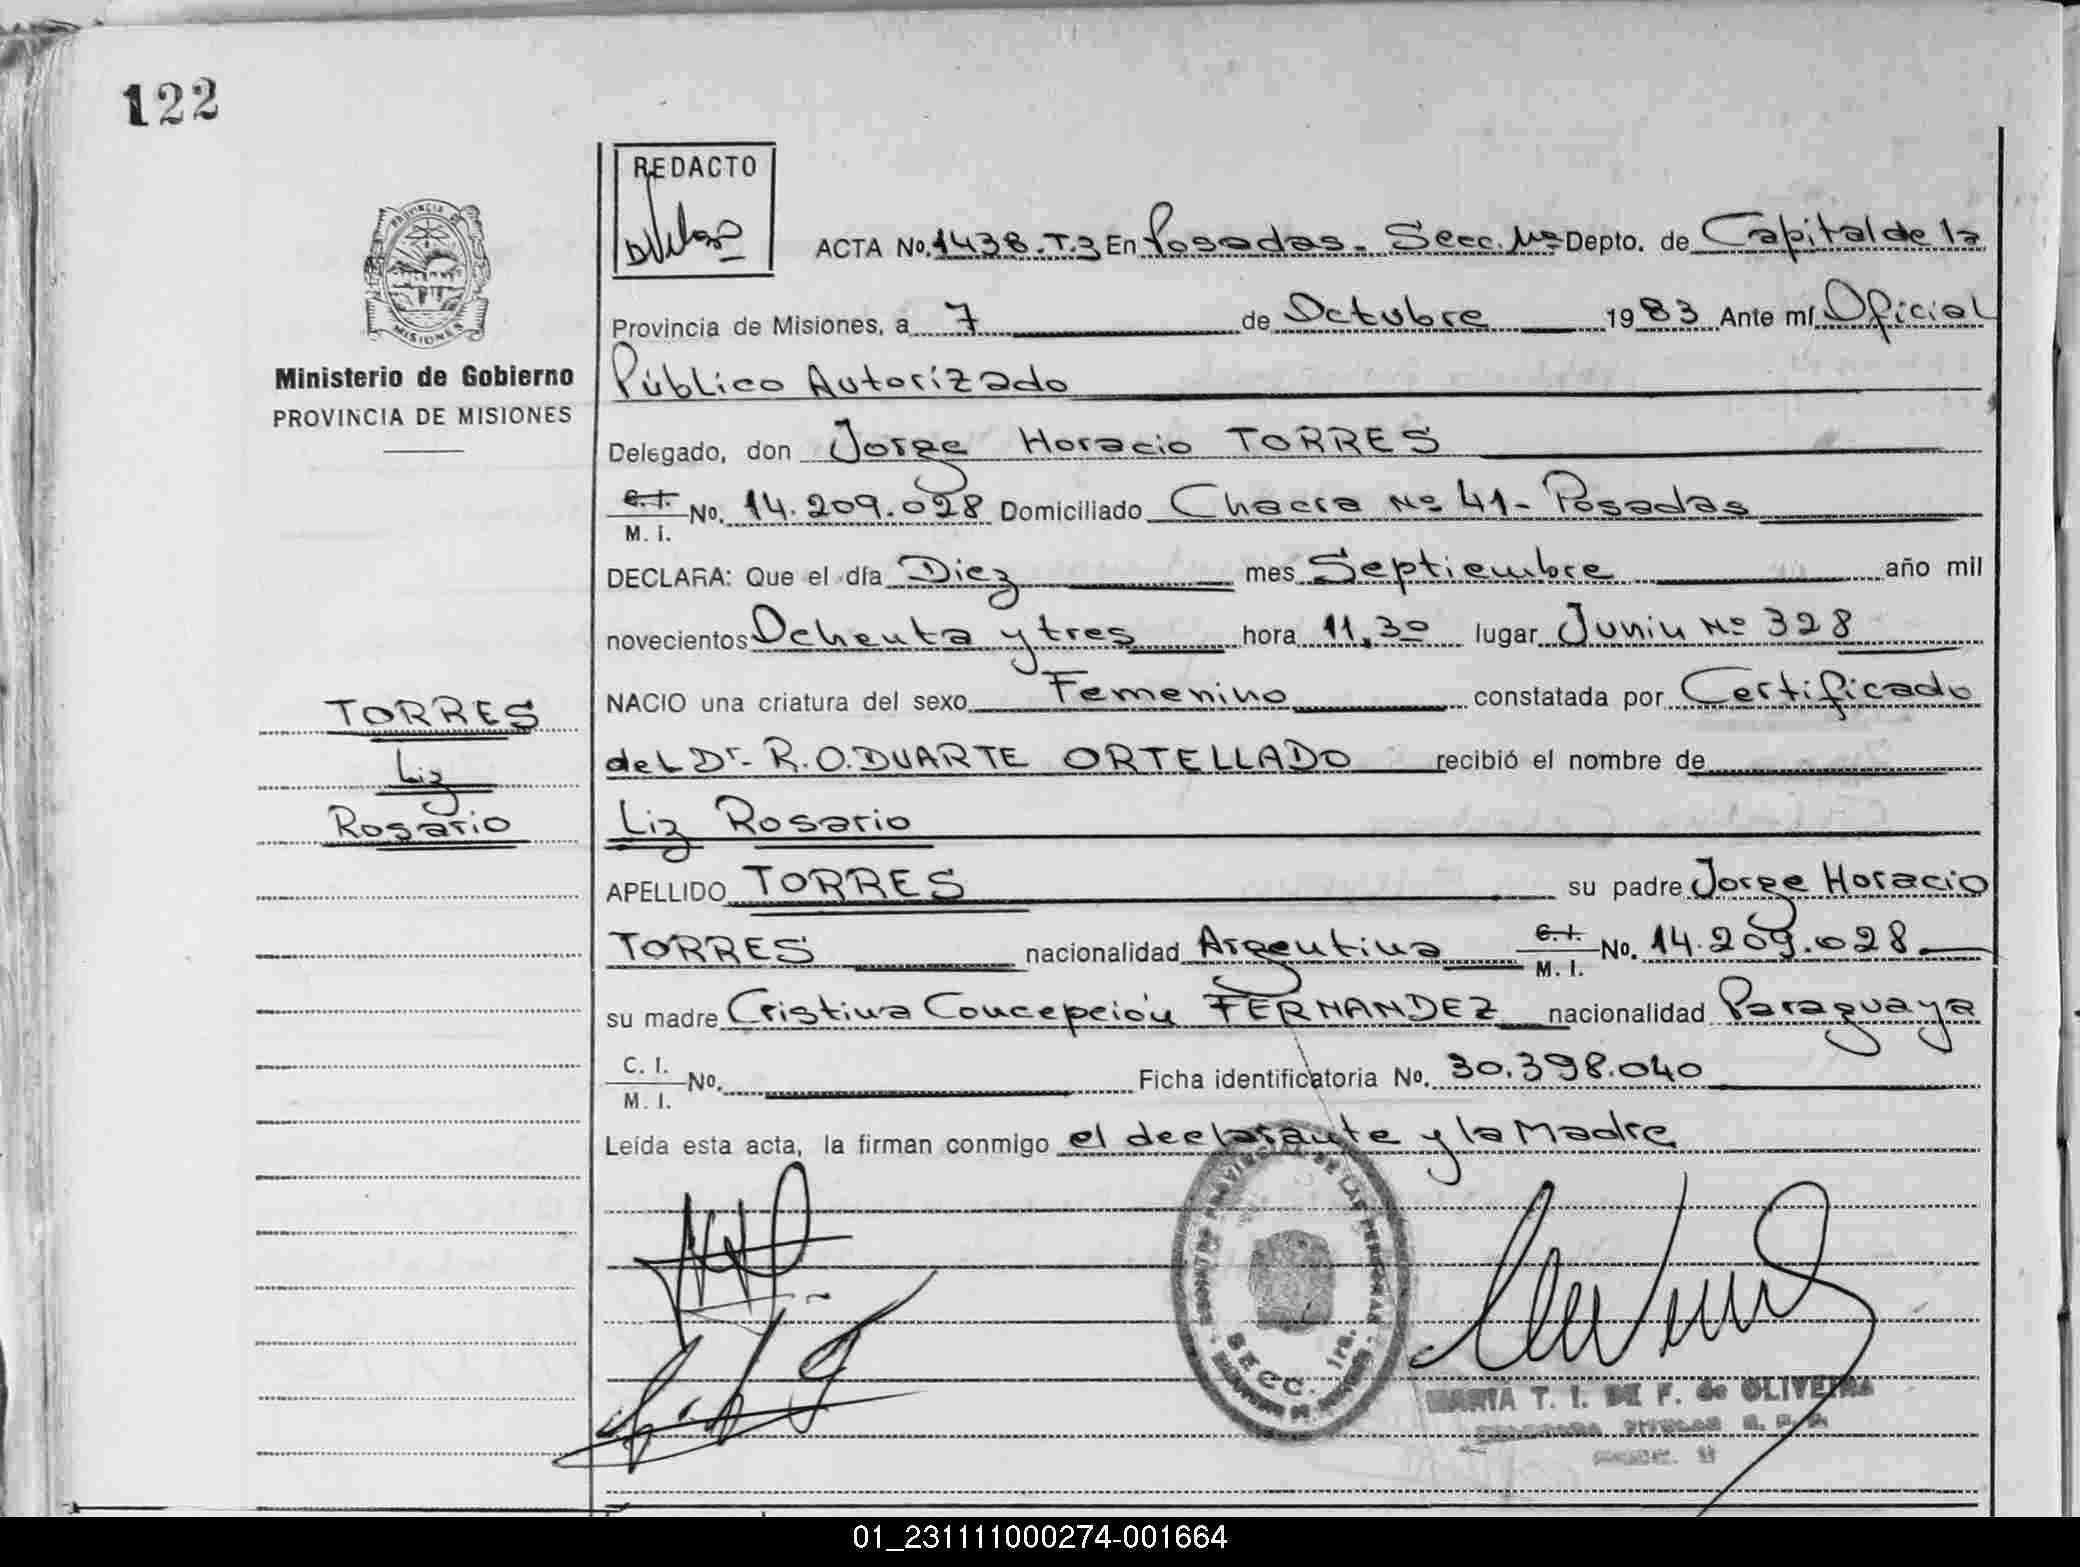 122
REDACTO
ACTA No. 1438.T.3 En Posadas - Secc. 1ª Depto. de Capital de la
Provincia de Misiones, a 7 de Octubre 1983 Ante mí Oficial
Ministerio de Gobierno
PROVINCIA DE MISIONES
Público Autorizado
Delegado, don Jorge Horacio TORRES
C.I. M. I. No. 14.209.028 Domiciliado Chacra Nº 41 - Posadas
DECLARA: Que el día Diez mes Septiembre año mil
novecientos Ochenta y tres hora 11,30 lugar Junin Nº 328
NACIO una criatura del sexo Femenino constatada por Certificado
TORRES
Liz
Rosario
del Dr. R.O. DUARTE ORTELLADO recibió el nombre de
Liz Rosario
APELLIDO TORRES su padre Jorge Horacio
TORRES nacionalidad Argentina C.I. M. I. No. 14.209.028
su madre Cristina Concepción FERNANDEZ nacionalidad Paraguaya
C. I. M. I. No. Ficha identificatoria No. 30.398.040
Leída esta acta, la firman conmigo el declarante y la Madre
REGISTRO PROVINCIAL DE LAS PERSONAS
SECC. 1ra.
MARIA T. I. DE F. de OLIVEIRA
01_231111000274-001664